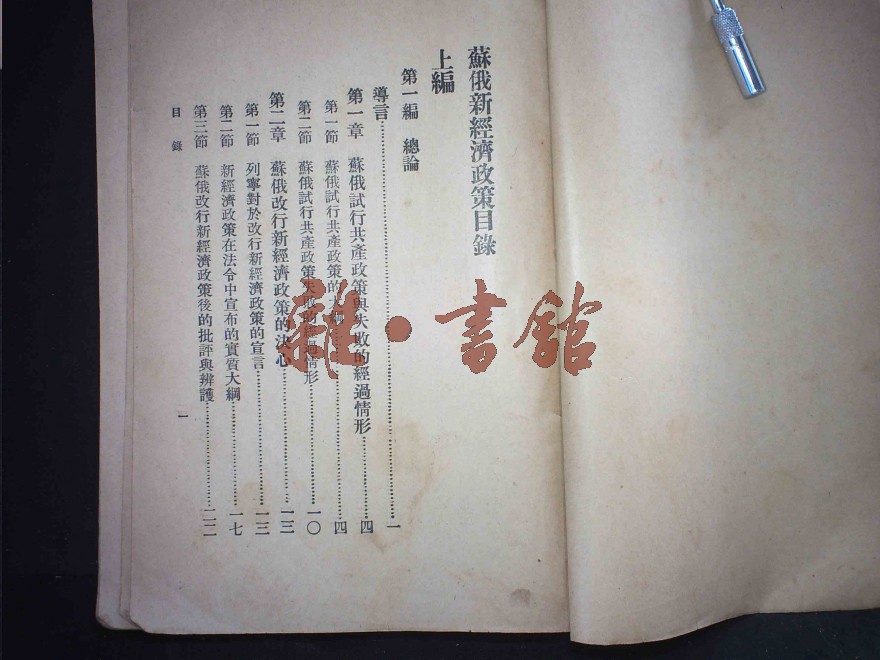 蘇俄新經濟政策目錄
上編
第一編 總論
導言……一
第一章 蘇俄試行共產政策與失敗的經過情形……四
第一節 蘇俄試行共產政策的大綱……四
第二節 蘇俄試行共產政策失敗的經過情形……一〇
第二章 蘇俄改行新經濟政策的決心……一三
第一節 列寧對於改行新經濟政策的宣言……一三
第二節 新經濟政策在法令中宣布的實質大綱……一七
第三節 蘇俄改行新經濟政策後的批評與辨護……二二
目錄 一
雜·書館